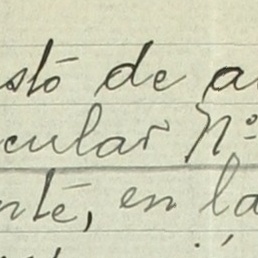 stó de a
cular Nº
nte, en la